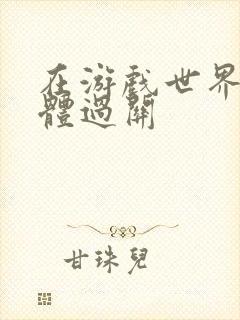 在游戲世界
體過關
甘珠兒